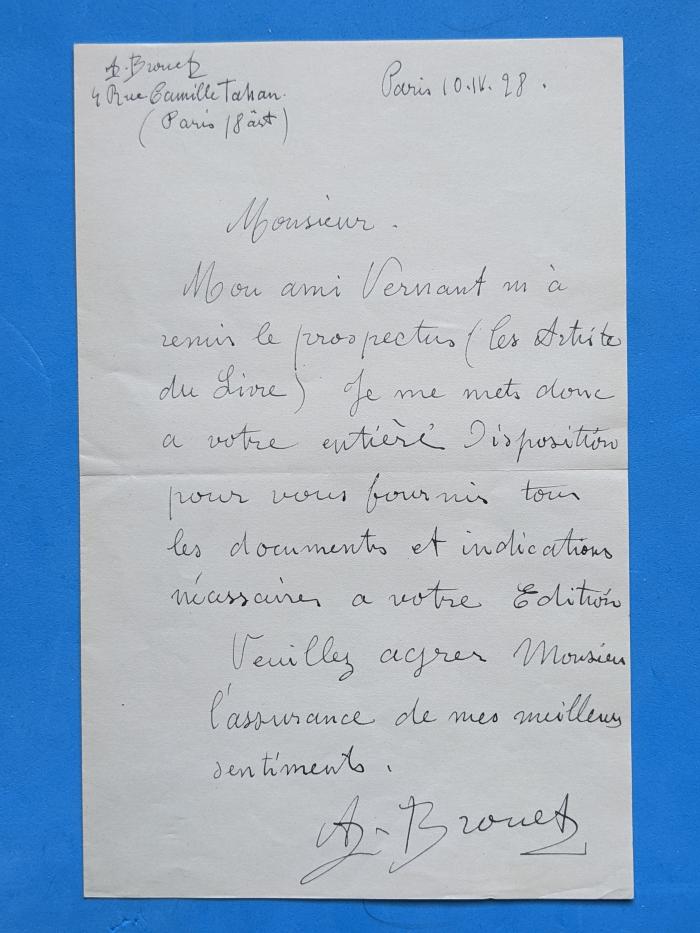 A. Brouet
4 Rue Camille Tahan.
(Paris 18 arrt)
Paris 10.IV.28.
Monsieur.
Mon ami Vernant m'à
remis le prospectus (les Artiste
du Livre) Je me mets donc
a votre entière Disposition
pour vous fournir tous
les documents et indications
nécassaires a votre Edition
Veuillez agrer Monsieu
l'assurance de mes meilleurs
sentiments.
A. Brouet